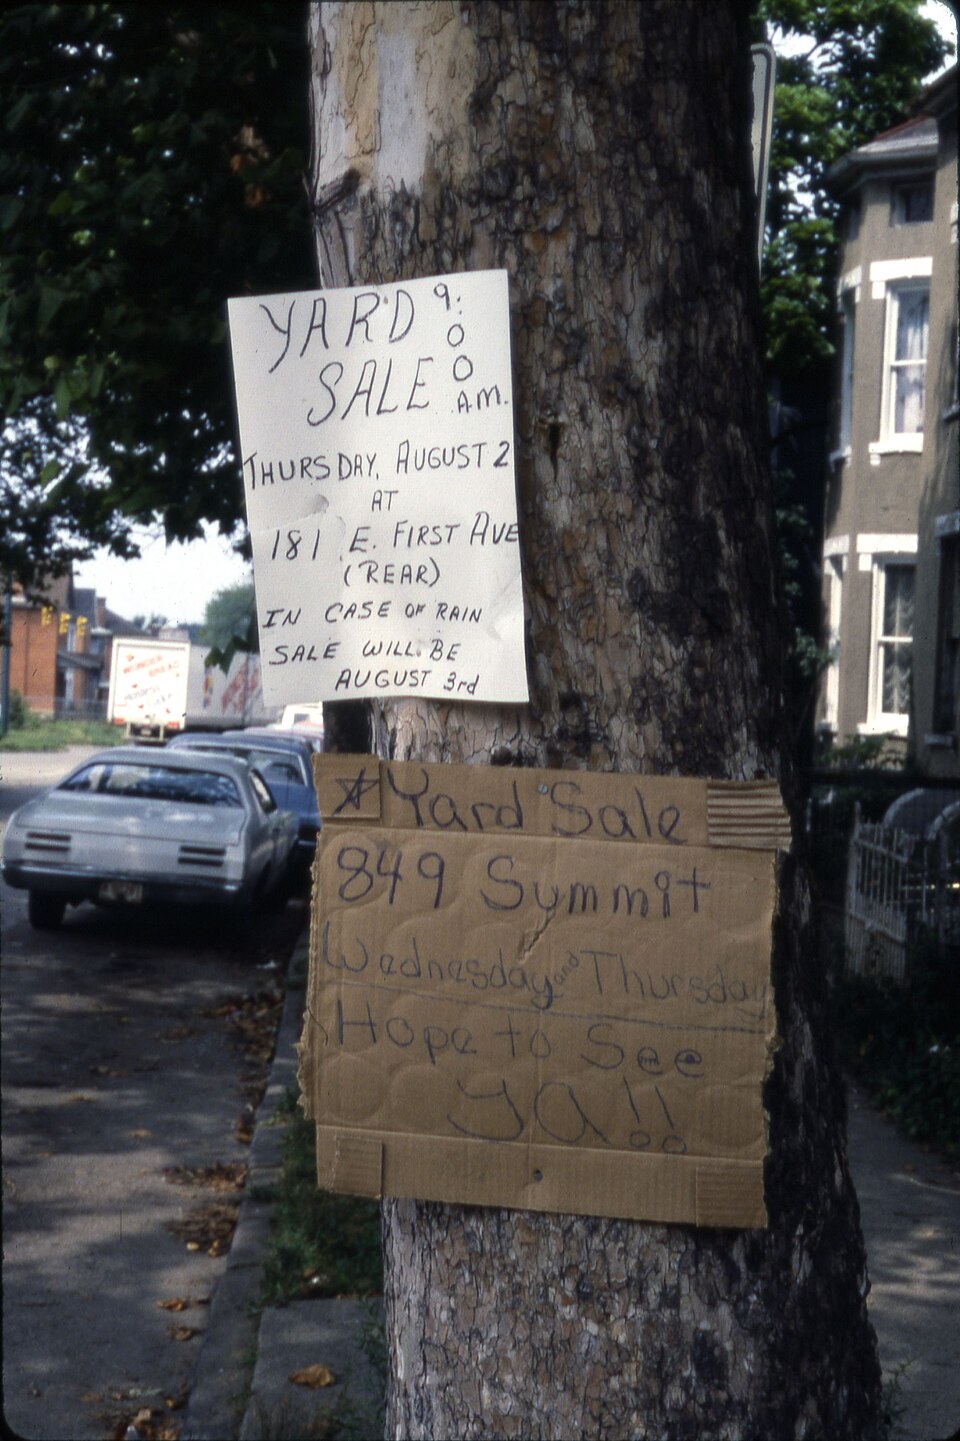 YARD 9:00 AM.
SALE
THURSDAY, AUGUST 2
AT
181 E. FIRST AVE
(REAR)
IN CASE OF RAIN
SALE WILL BE
AUGUST 3rd
Yard Sale
849 Summit
Wednesday and Thursday
Hope to See
YA!!